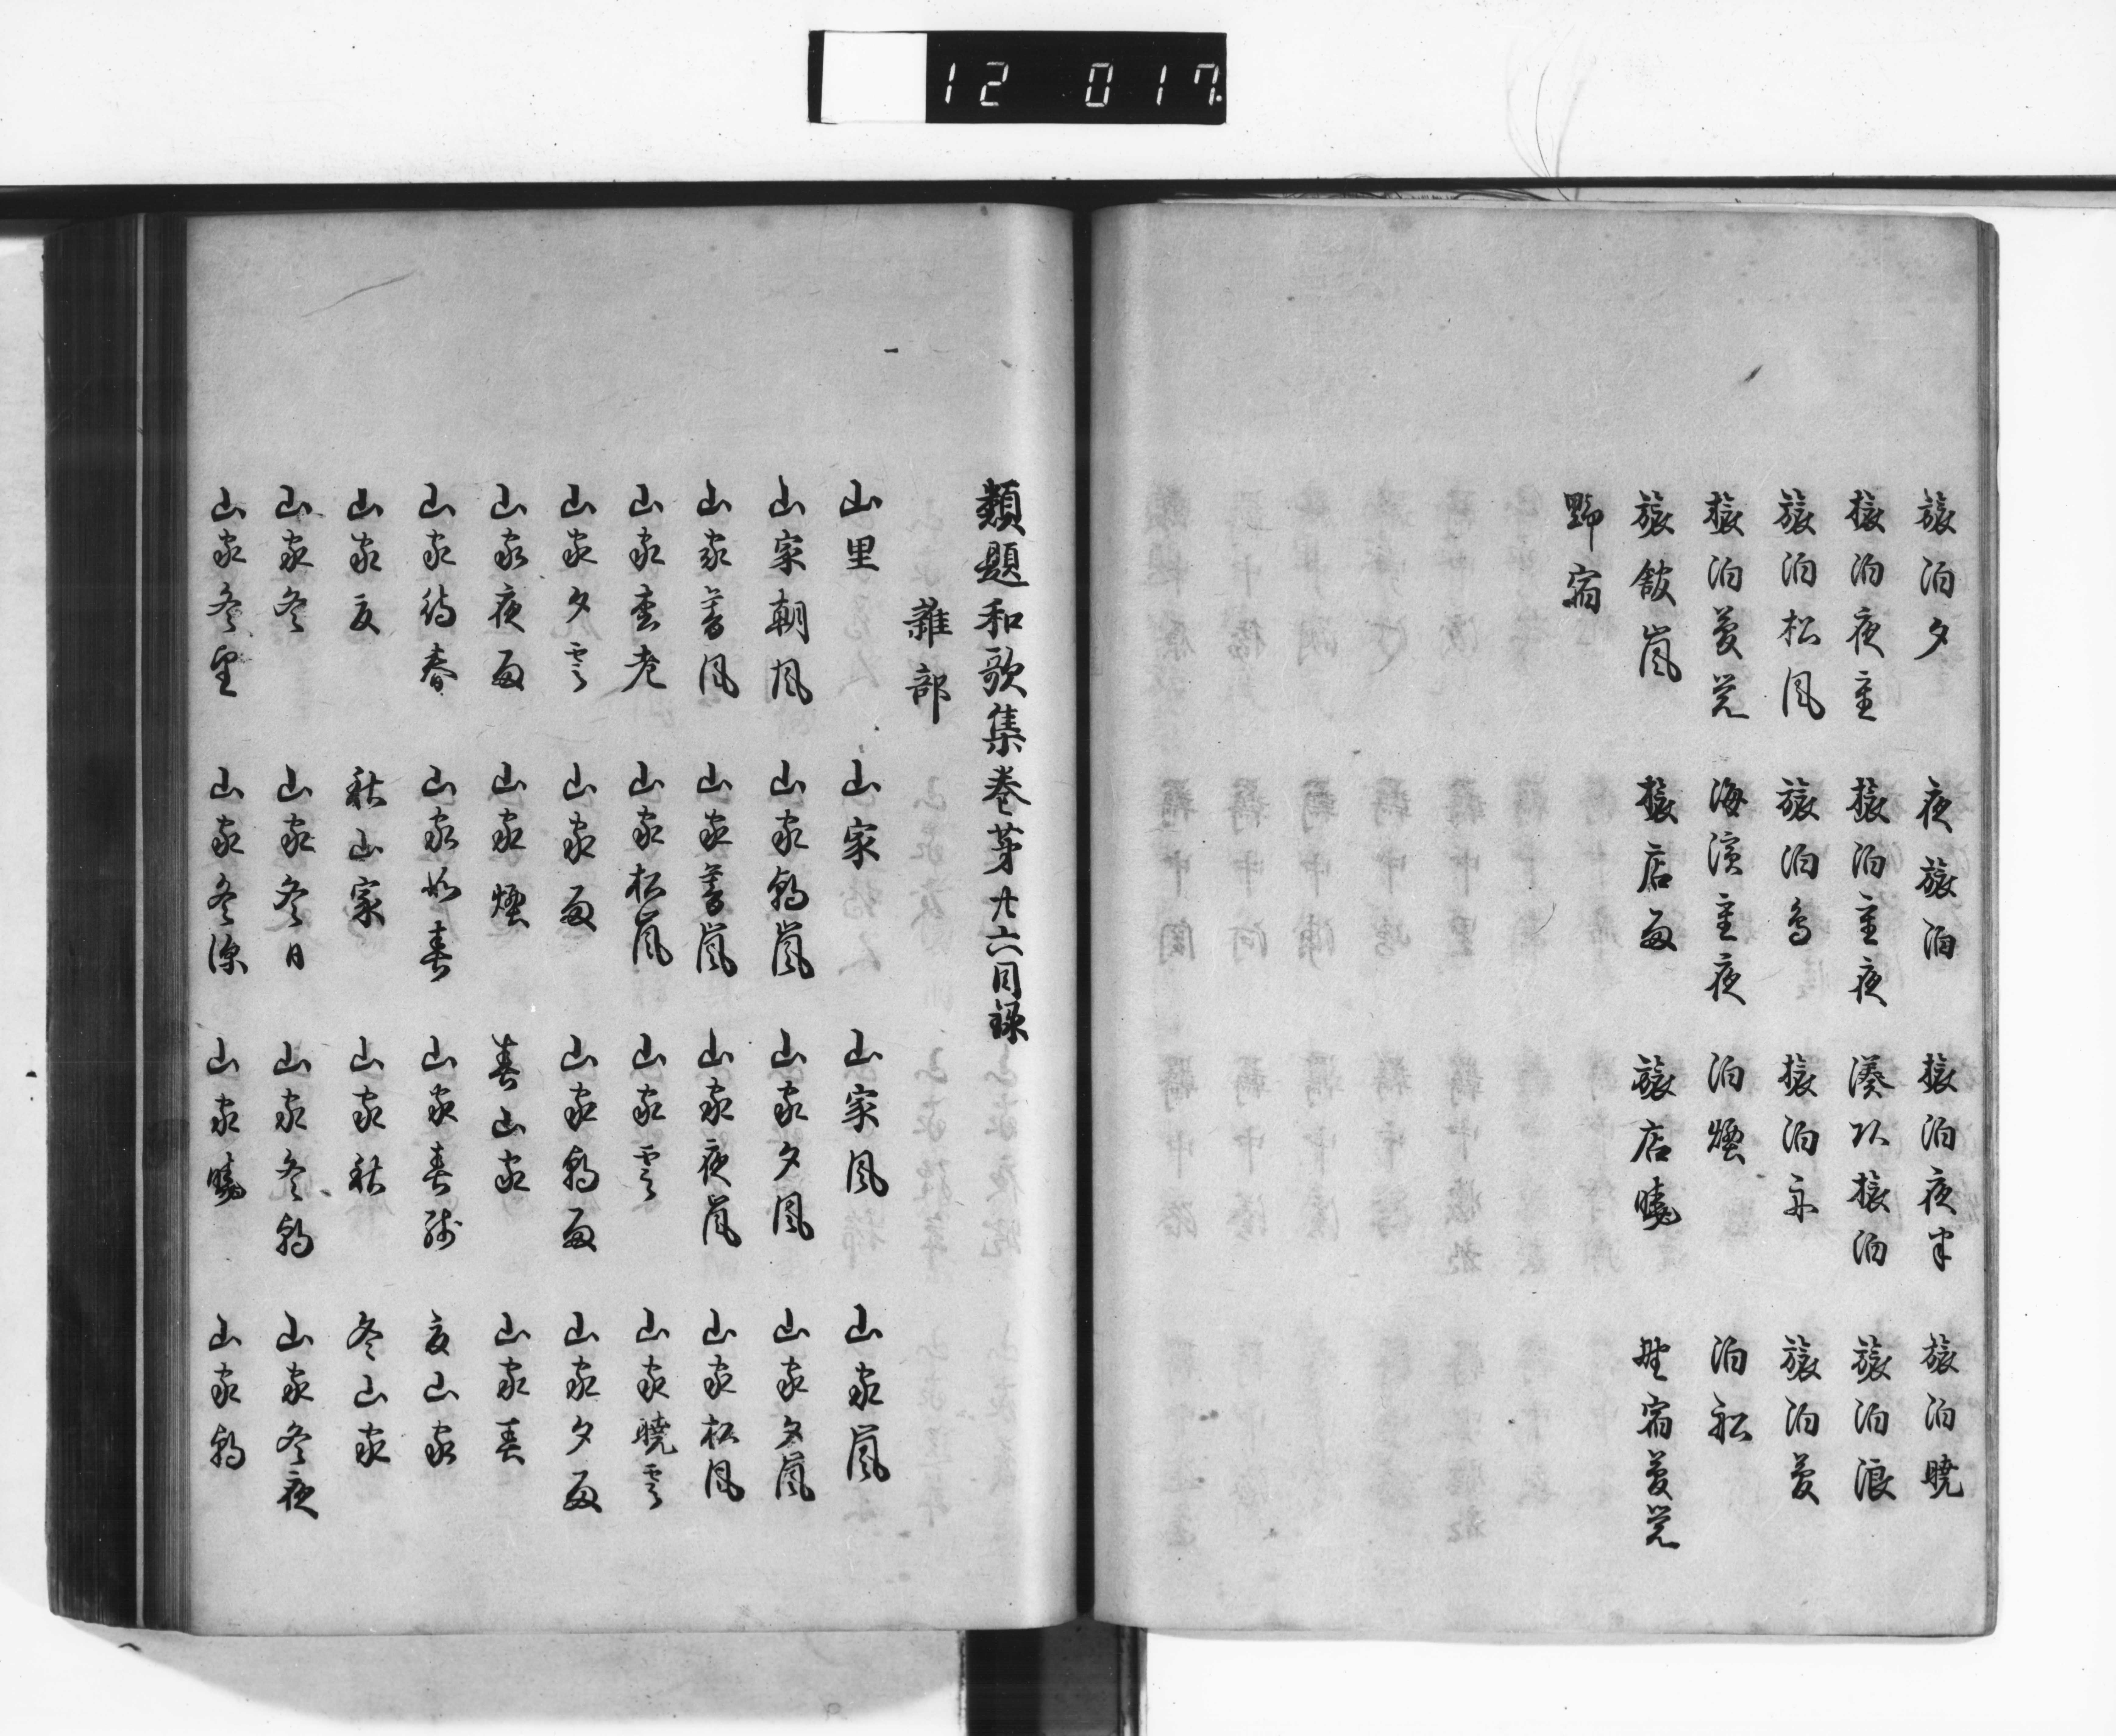 12 017
旅泊夕 夜旅泊 旅泊夜半 旅泊暁
旅泊夜重 旅泊重夜 湊以旅泊 旅泊浪
旅泊松風 旅泊鳥 旅泊舟 旅泊夢
旅泊夢覚 海濱重夜 泊煙 泊舩
旅館嵐 旅店雨 旅店暁 野宿夢覚
野宿
類題和歌集巻第廿六目録
雑部
山里 山家 山家風 山家嵐
山家朝風 山家朝嵐 山家夕風 山家夕嵐
山家暮風 山家暮嵐 山家夜嵐 山家松風
山家松嵐 山家雲 山家暁雲
山家夕雲 山家雨 山家朝雨 山家夕雨
山家夜雨 山家煙 春山家 山家春
山家待春 山家如春 山家春 夏山家
山家夏 秋山家 山家秋 冬山家
山家冬 山家冬日 山家冬朝 山家冬夜
山家冬望 山家冬深 山家暁 山家朝